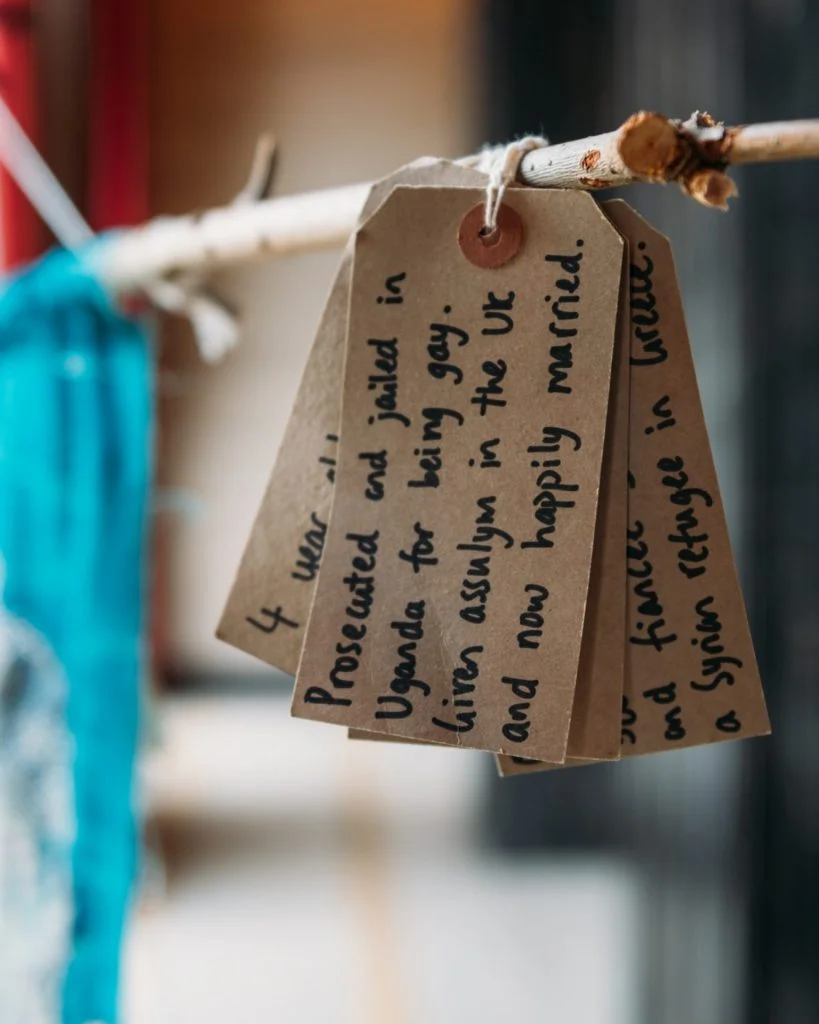 4 year
Prosecuted and jailed in
Uganda for being gay.
Given assulym in the UK
and now happily married.
and fiancee
a Syrian refugee in Greece.